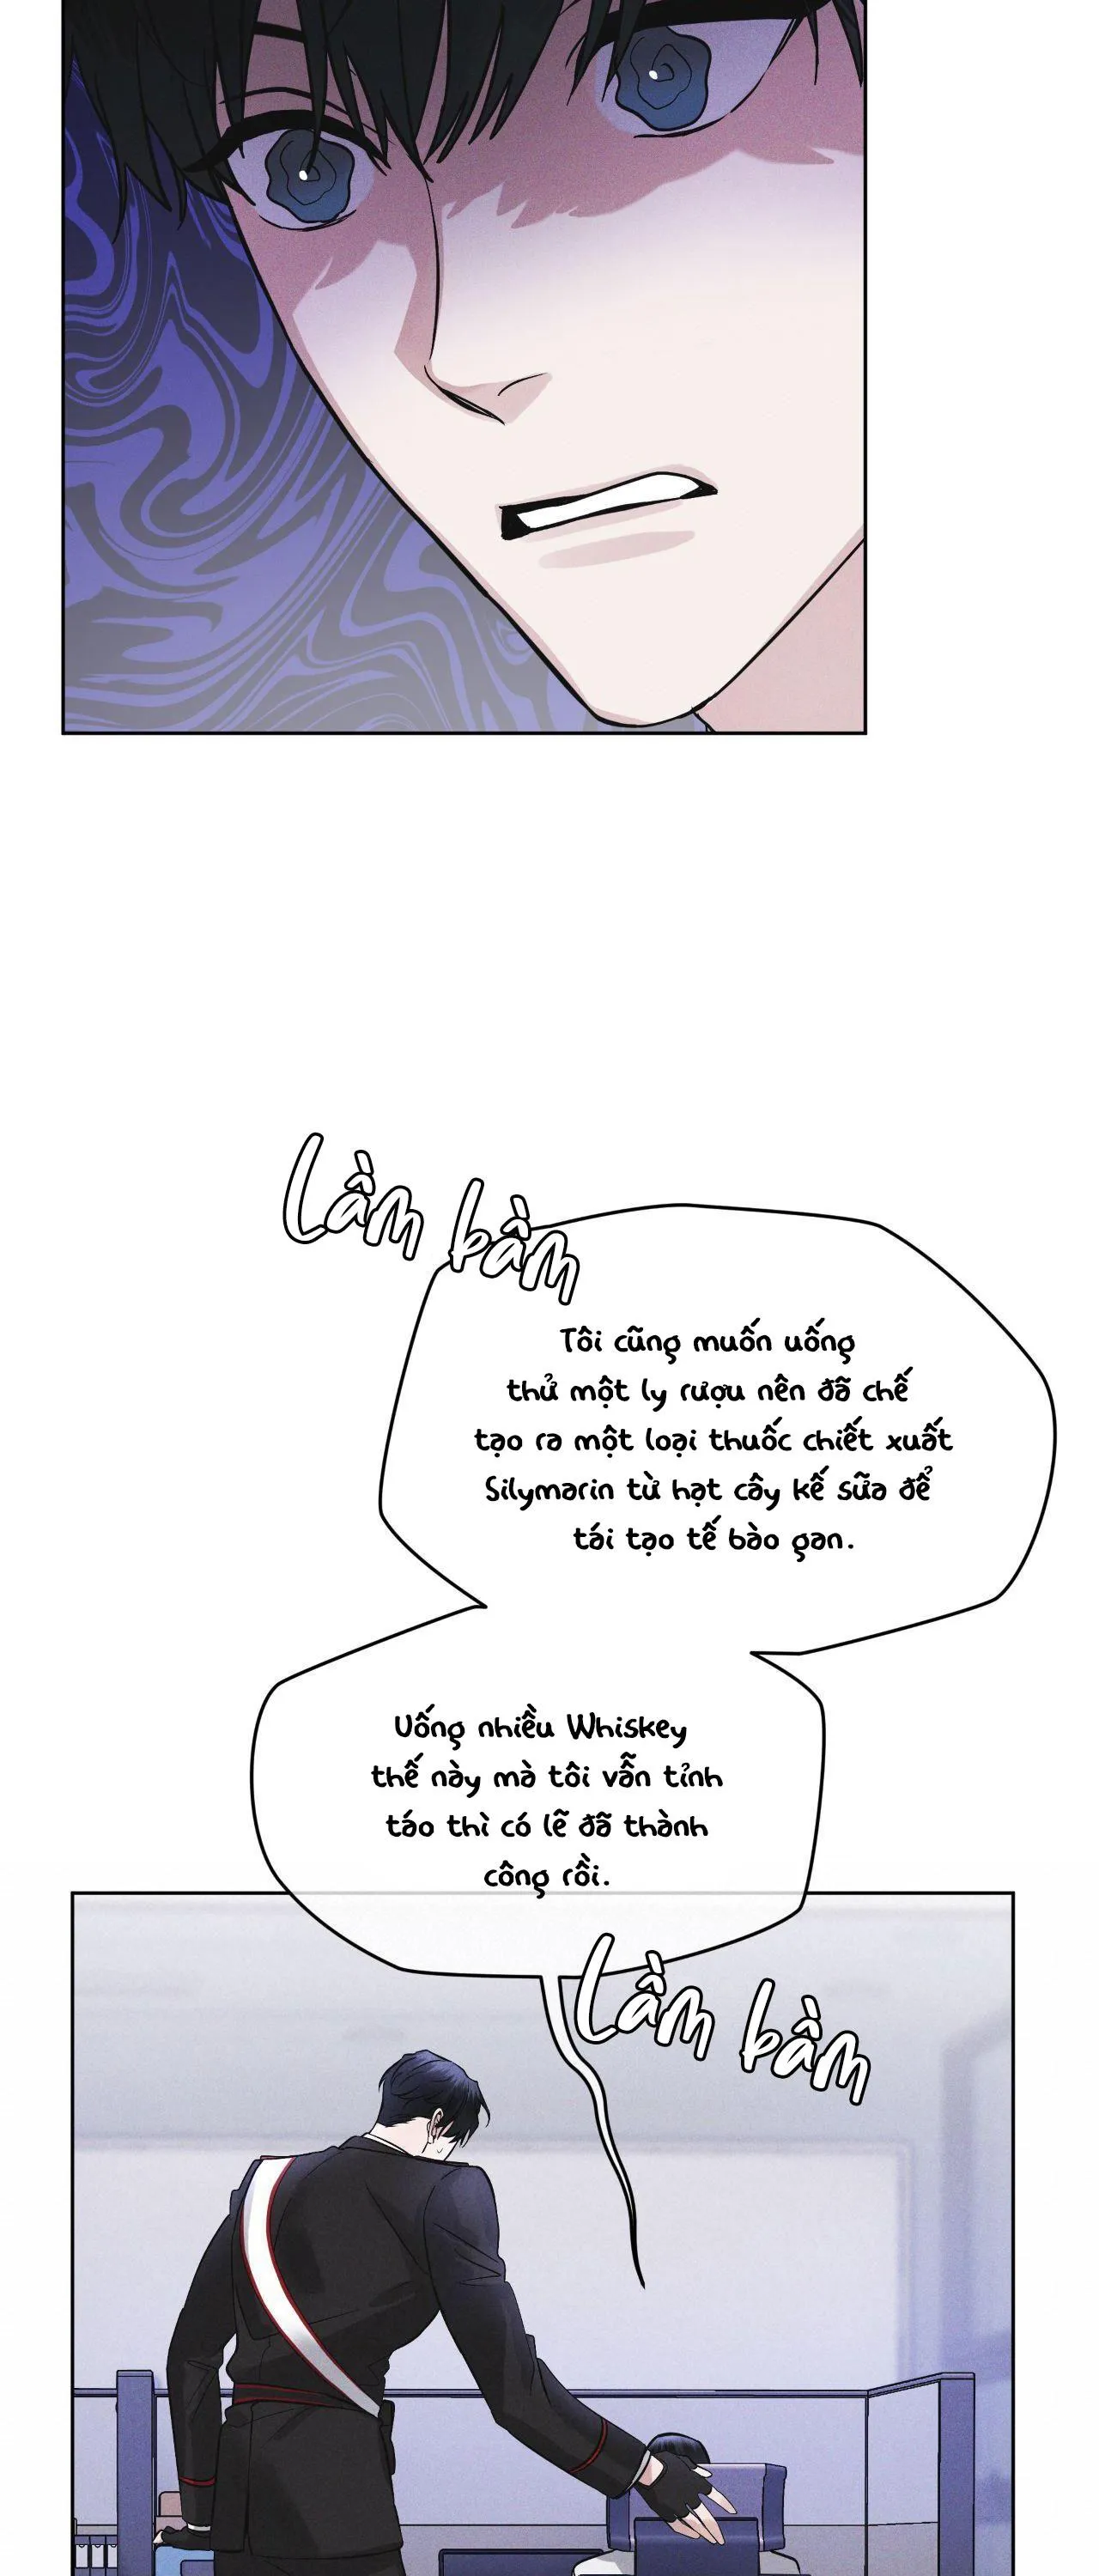 Lầm bầm
Tôi cũng muốn uống
thử một ly rượu nên đã chế
tạo ra một loại thuốc chiết xuất
Silymarin từ hạt cây kế sữa để
tái tạo tế bào gan.
Uống nhiều Whiskey
thế này mà tôi vẫn tỉnh
táo thì có lẽ đã thành
công rồi.
Lầm bầm